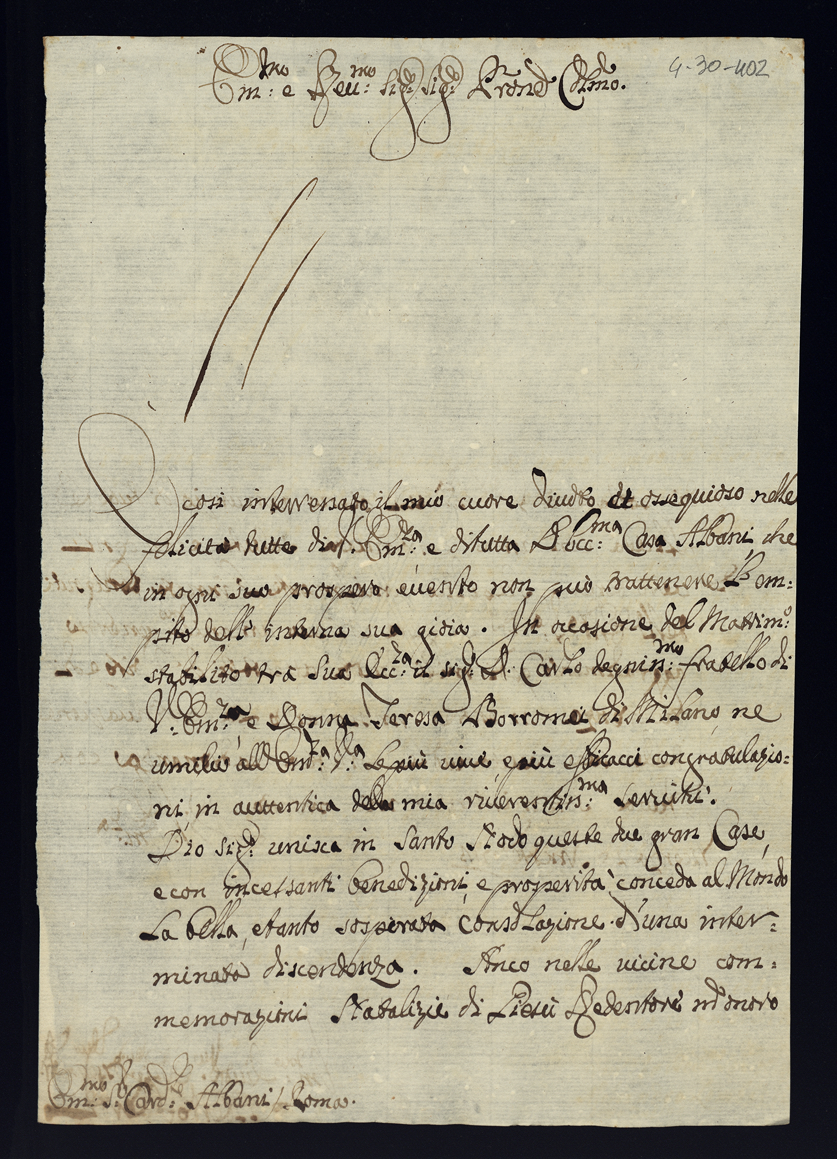 Em:mo e Reu:mo Sig:r Sig:r Prone Colmo.
4-30-402
È così interressato il mio cuore diuoto et ossequioso nelle
felicità tutte di V. Em:za e di tutta L'Ecc:ma Casa Albani che
in ogni suo prospero euento non può trattenere L'em=
pito dell'interna sua gioia. In occasione del Matrim:o
stabilito trà Sua Ecc:za il sig:r D. Carlo degniss:mo fratello di
V: Em:za, e Donna Teresa Borromei di Milano, ne
umilio all'Em:za V:ra Le più uiue, e più efficaci congratulazio=
ni in auttentica della mia riuerentiss:ma seruitù.
Dio sig:r unisca in Santo Nodo queste due gran Case,
e con incessanti benedizioni, e prosperità conceda al Mondo
La bella, e tanto sospirata consolazione d'una inter=
minata discendenza. Anco nelle uicine com=
memorazioni Natalizie di Giesù Redentore m'onoro
Em:mo S:r Card:e Albani / Roma.